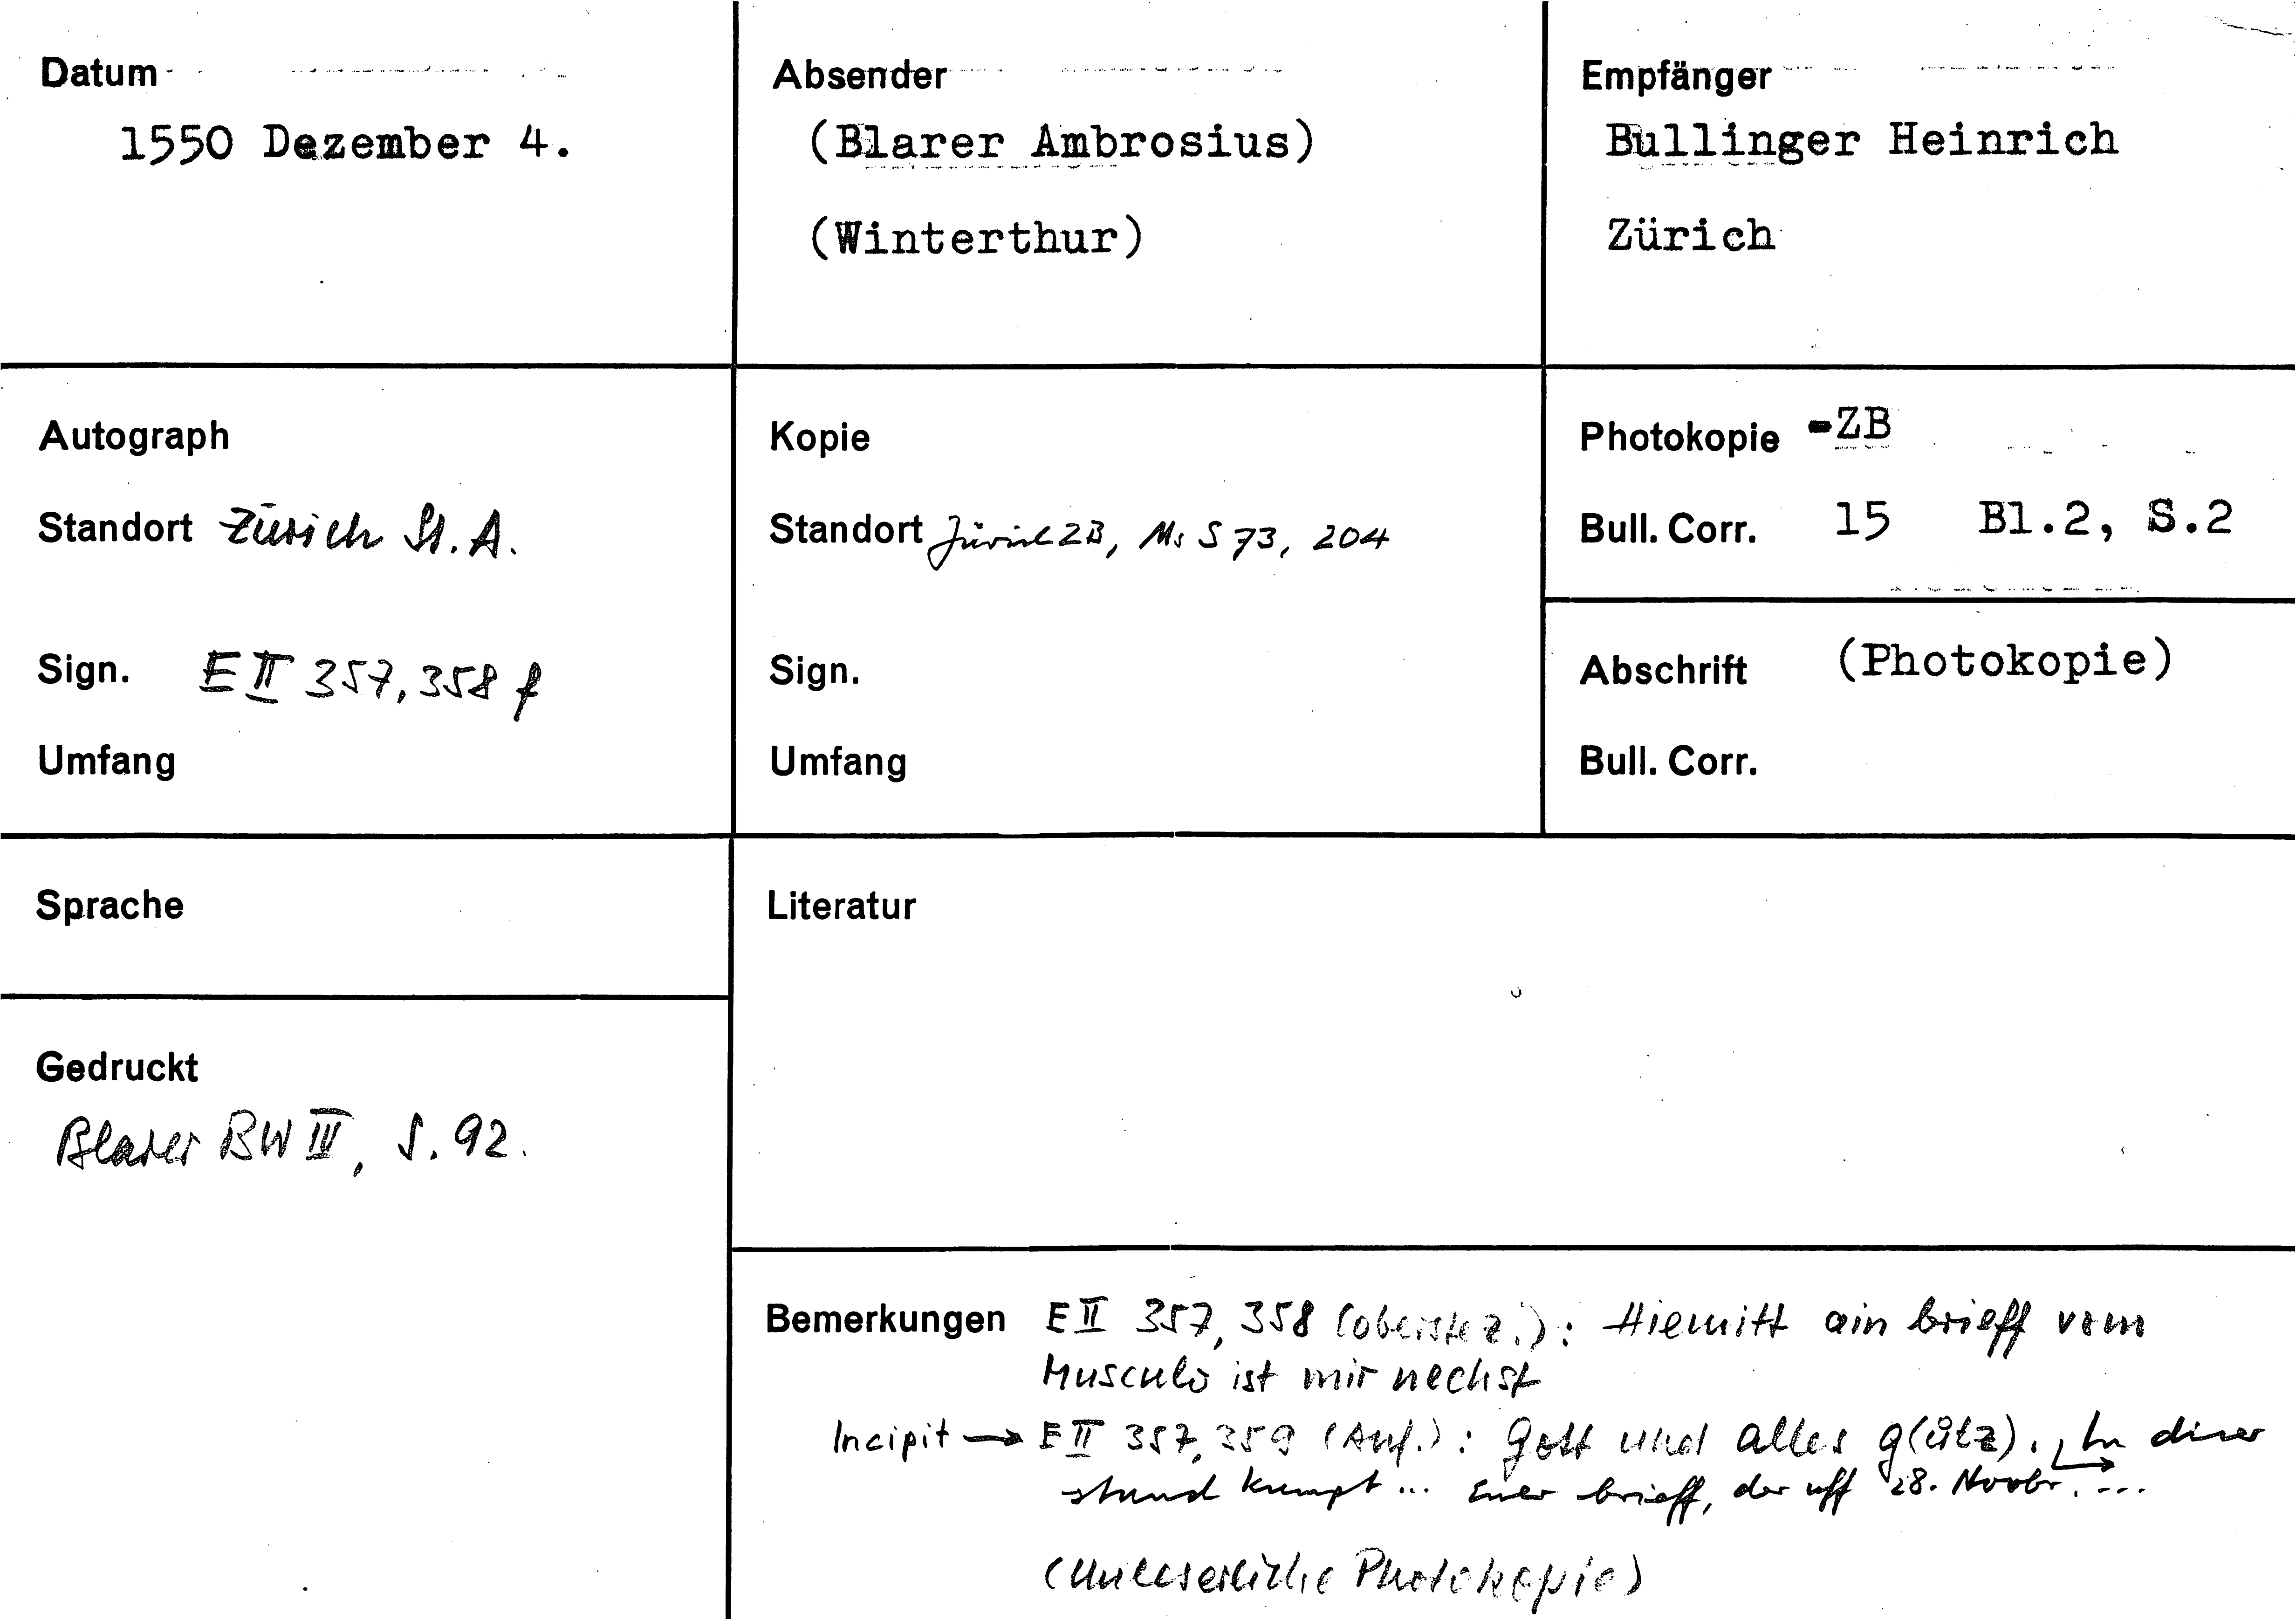 Datum
1550 Dezember 4.
Absender
(Blarer Ambrosius)
(Winterthur)
Empfänger
Bullinger Heinrich
Zürich
Autograph
Standort Zürich St. A.
Sign. E II 357, 358 f
Umfang
Kopie
Standort Zürich ZB, Ms S 73, 204
Sign.
Umfang
Photokopie -ZB
Bull. Corr. 15 Bl.2, S.2
Abschrift (Photokopie)
Bull. Corr.
Sprache
Literatur
Gedruckt
Blarer BW III, S. 92.
Bemerkungen E II 357, 358 (oberste Z.): Hiemitt ain brieff vom
Musculo ist mir nechst
Incipit → E II 357, 359 (Anf.): Gott und alles g(ůtz). In diser
stund kumpt ... Euer brieff, der uff 28. Novbr. ...
(Unleserliche Photokopie)